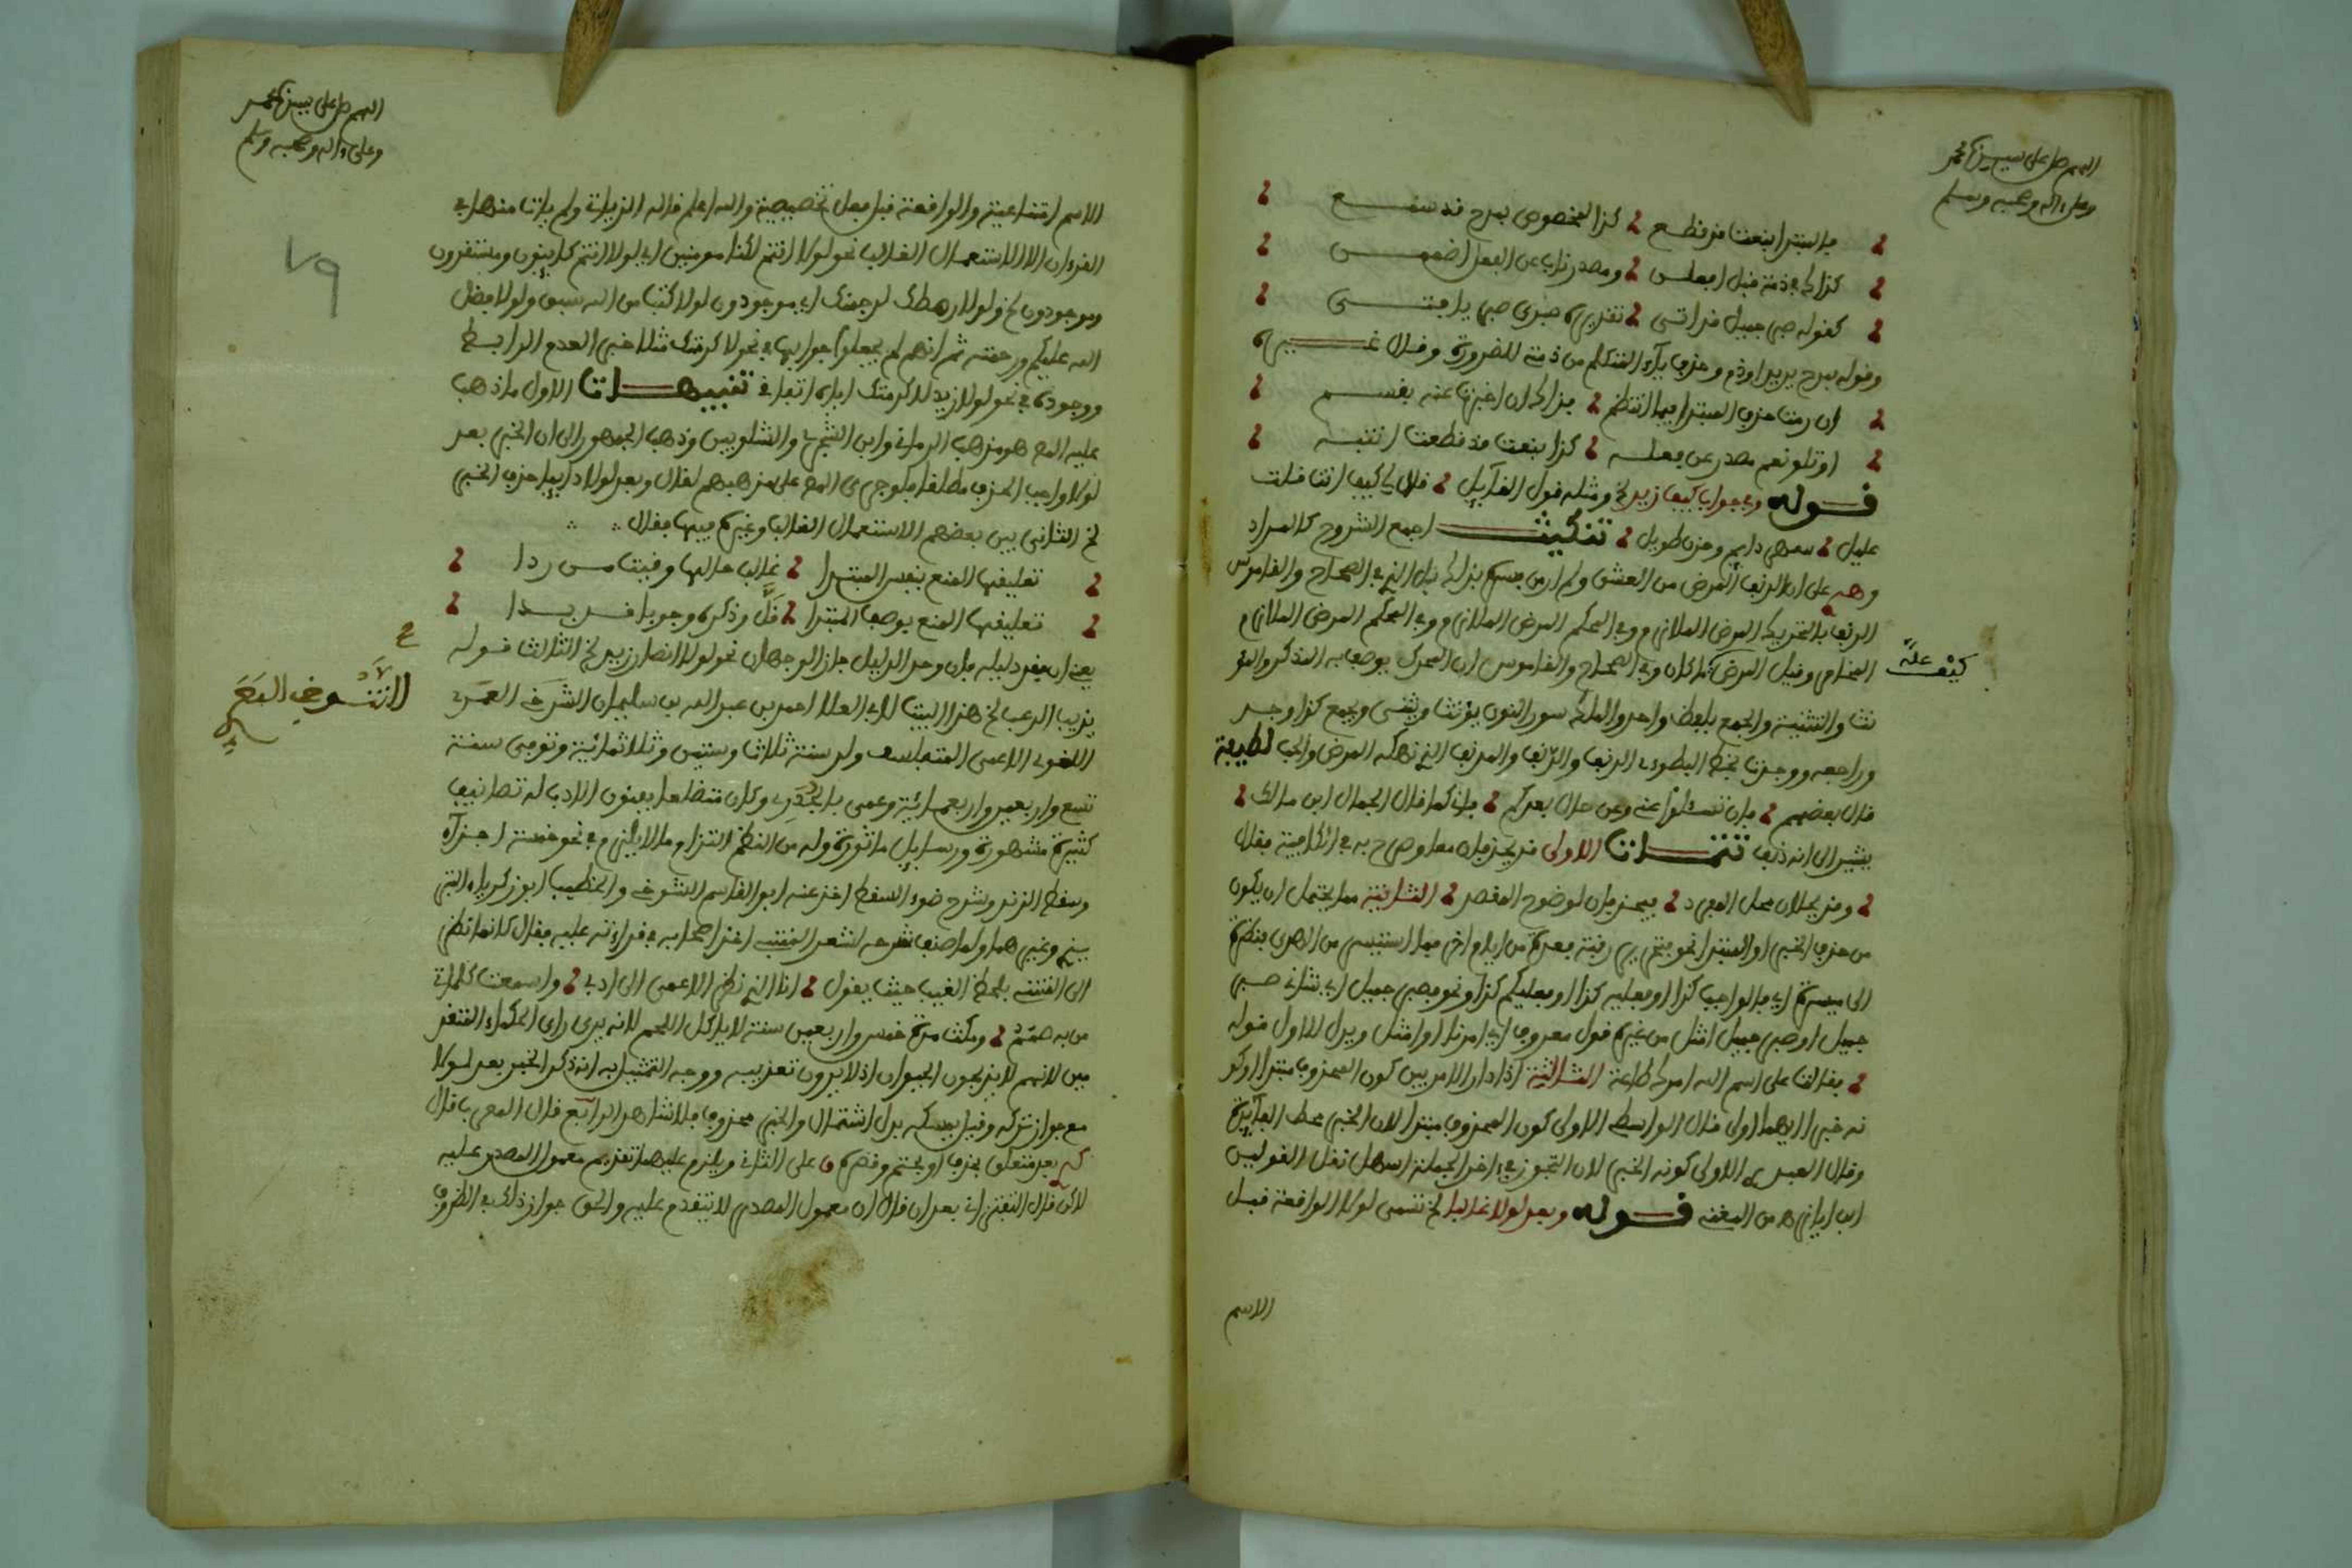 اللهم صل على سيدنا محمد
وعلى ءاله وصحبه وسلم
بالمبتدا بنعت قد قطع كذا المخصوص بمدح قد سمع
كذاك في ذمة قبل افعلن ومصدر ناب عن الفعل
كقوله صبر جميل قد اتى تقديره صبرى صبر يا فتى
وقوله بمدح يريد او ذم وحذف ياء المتكلم من ذمة للضرورة وقال غيره
ان رمت حذف المبتدا فيما انتظم فذاك ان اخبرتنا عنه بقسم
او تلو نعم مصدر عن فعله كذا بنعت قد قطعت انتبه
قوله وفي جواب كيف زيد الخ ومثله قول القائل قال لي كيف انت قلت
عليل سهر دايم وحزن طويل تنكيت اجمع الشروح كالمراد
وهو على ان الدنف المرض من العشق ولم ار من فسره بذلك بل الذي في الصحاح والقاموس
الدنف بالتحريك المرض الملازم وفي المحكم المرض الملازم وفي المحكم المرض الملازم
المخامر وقيل المرض ما كان وفي الصحاح والقاموس ان المحرك يوصف به المذكر والمؤ
كيف علة
نث والتثنية والجمع بلفظ واحد والمكسور النون يؤنث ويثنى ويجمع كذا وجد
وراجعه ووجدت بخط البطوءى الدنف والدنف والمدنف الذي نهكه المرض والحب لطيفة
قال بعضهم فان تسئلوا عني وعن حال بعدكم فاني كما قال الجمال ابن مالك
يشير الى انه دنف تتمات الاولى قد يحذفان معا وصرح به في الكافية فقال
وقد يحلان محل المفرد فيحذفان لوضوح المقصد الثانية مما يحتمل ان يكون
من حذف الخبر او المبتدا نحو فتحرير رقبة فعدة من ايام اخر فما استيسر من الهدى فنظرة
الى ميسرة اي فالواجب كذا او فعليه كذا او فعليكم كذا ونحو فصبر جميل اي شاني صبر
جميل او صبر جميل امثل من غيره قول معروف اي امرنا او امثل ويدل للاول قوله
فقالت على اسم الله امرك طاعة الثالثة اذا دار الامر بين كون المحذوف مبتدا او كو
نه خبرا ايهما اولى قال الواسطي الاولى كون المحذوف مبتدا لان الخبر محط الفائدة
وقال العبدي الاولى كونه الخبر لان التجوز في ءاخر الجملة اسهل نقل القولين
ابن اياز من المغني قوله وبعد لولا غالبا الخ تسمى لولا الواقعة قبل
الاسم
اللهم صل على سيدنا محمد
وعلى ءاله وصحبه وسلم
٧٩
الاسم امتناعية والواقعة قبل فعل تحضيضية والله اعلم قاله الزياتي ولم يات منها في
القرءان الا الاستعمال الغالب نحو لولا انتم لكنا مومنين اي لولا انتم كاينون ومستقرون
وموجودون الخ ولولا رهطك لرجمنك اي موجودون لولا كتاب من الله سبق ولولا فضل
الله عليكم ورحمته ثم انهم لم يجعلوا جوابها في نحو لاكرمتك مثلا خبر العدم الرابط
ووجوده في نحو لولا زيد لاكرمتك اياه اتفاقا تنبيهات الاول ما ذهب
عليه المص هو مذهب الرماني وابن الشجري والشلوبين وذهب الجمهور الى ان الخبر بعد
لولا واجب الحذف مطلقا فلو جرى المص على مذهبهم لقال وبعد لولا دايما حذف الخبر
الخ الثاني بين بعضهم الاستعمال الغالب وغيره فيها فقال
تعليقها المنع بنفس المبتدا غالب حالها وقيت من ردا
تعليقها المنع بوصف المبتدا قل وذكره وجوبا قد بدا
يعني ان يفقد دليله فان وجد الدليل جاز الوجهان نحو لولا انصار زيد الخ الثالث قوله
يذيب الرعب الخ هذا البيت لابي العلا احمد بن عبد الله بن سليمان الشرفي المعرى
التنوخي المعرى
اللغوى الاعمى المتفلسف ولد سنة ثلاث وستين وثلاثمائة وتوفي سنة
تسع واربعين واربعمائة وعمى بالجدرى وكان متضلعا بفنون الادب له تصانيف
كثيرة مشهورة ورسايل ماثورة وله من النظم التزام ما لا يلزم في نحو خمسة اجزاء
وسقط الزند وشرح ضوء السقط اخذ عنه ابو القاسم التنوخي والخطيب ابو زكرياء التبر
يزي وغيرهما ولما صنف شرحه لشعر المتنبي اخذ اصحابه في قراءته عليه فقال كانما نظر
الى المتنبي بلحظ الغيب حيث يقول انا الذي نظر الاعمى الى ادبي واسمعت كلماتي
من به صمم ومكث مدة خمس واربعين سنة لا ياكل اللحم لانه يرى راى الحكماء المتقد
مين لانهم لا يذبحون الحيوان اذ لا يرون تعذيبه ووجه التمثيل به انه ذكر الخبر بعد لولا
مع جواز تركه وقيل يمسكه بدل اشتمال والخبر محذوف فلا شاهد الرابع قال المعرب قال
بعد متعلق بحذف او بحتم وقصره على الثاني ويلزم عليهما تقديم معمول المصدر عليه
لاكن قال التفتزاني بعد ان قال ان معمول المصدر لا يتقدم عليه والحق جواز ذلك في الظروف